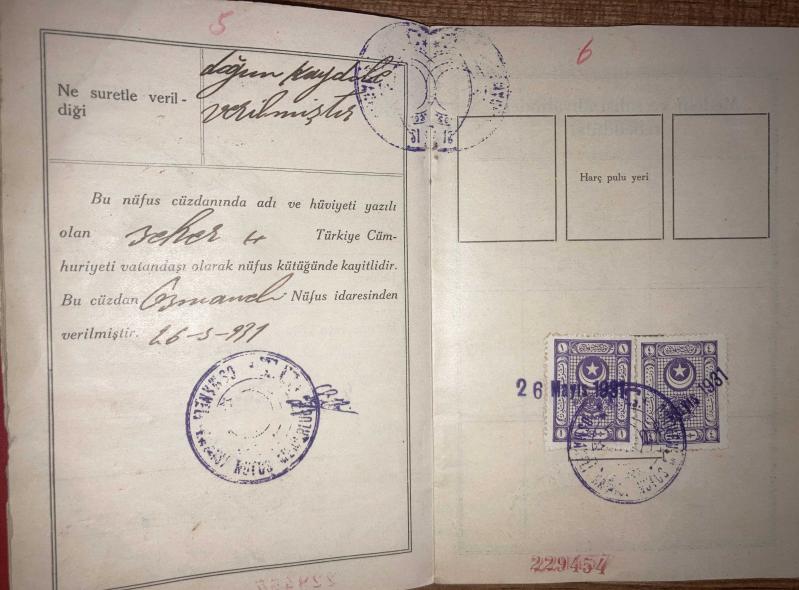 5
Ne suretle veril-
diği
doğum kaydile
verilmiştir
Bu nüfus cüzdanında adı ve hüviyeti yazılı
olan Seher Türkiye Cüm-
huriyeti vatandaşı olarak nüfus kütüğünde kayitlidir.
Bu cüzdan Osmaneli Nüfus idaresinden
verilmiştir. 26-5-931
6
Harç pulu yeri
26 Mayıs 1931
229454